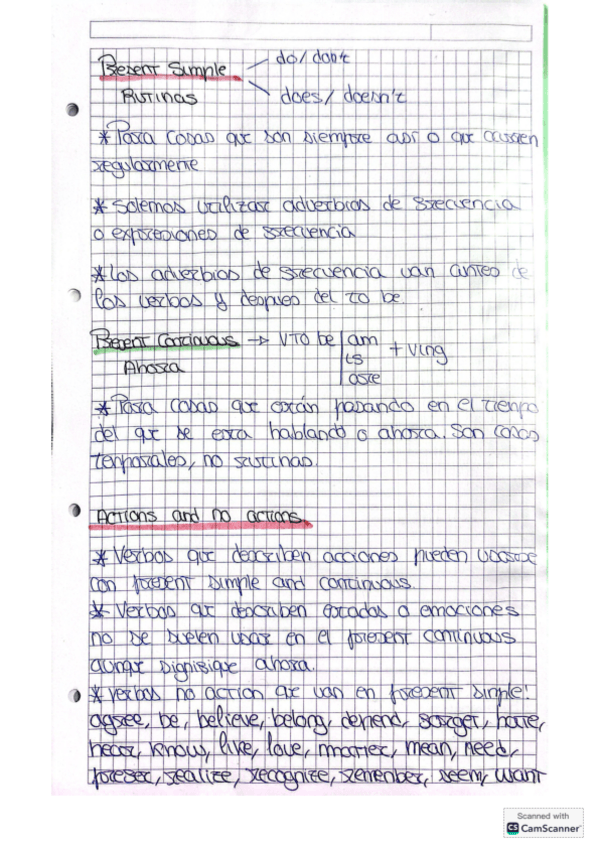 Present Simple do/don't
Rutinas does/doesn't
* Para cosas que son siempre así o que ocurren
regularmente
* Solemos utilizar adverbios de frecuencia
o expresiones de frecuencia
* Los adverbios de frecuencia van antes de
los verbos y despues del to be.
Present Continuous → V TO be am
is + Ving
Ahora are
* Para cosas que están pasando en el tiempo
del que se esta hablando o ahora. Son cosas
temporales, no rutinas.
Actions and no actions
* Verbos que describen acciones pueden usarse
con present simple and continuous.
* Verbos que describen estados o emociones
no se suelen usar en el present continuous
aunqe signifique ahora.
* Verbos no action que van en present simple:
agree, be, believe, belong, depend, forget, hate,
hear, know, like, love, matter, mean, need,
prefer, realize, recognize, remember, seem, want
Scanned with
CS CamScanner